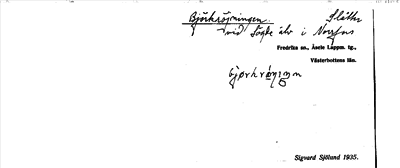 Björkröjningen. Slåtter
vid Lögde älv i Norrfors
Fredrika sn., Åsele Lappm. tg.,
Västerbottens län.
Sigvard Sjöland 1935.